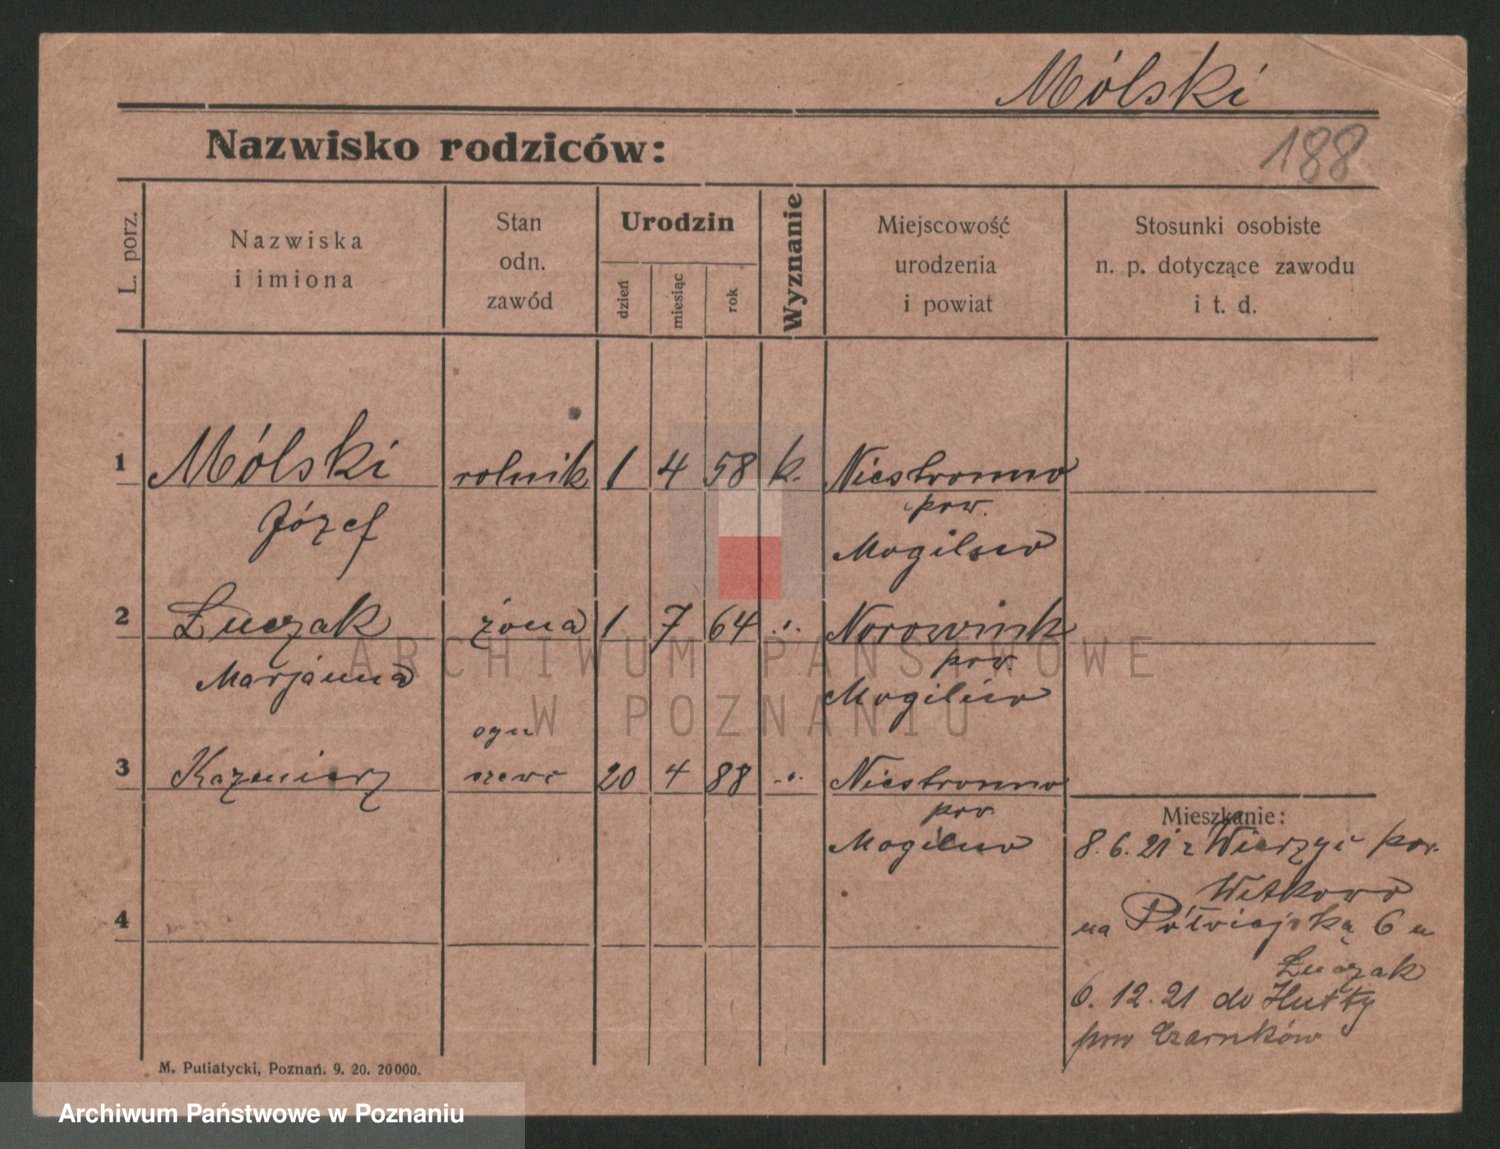 Mólski
188
Nazwisko rodziców:
L. porz.
Nazwiska
i imiona
Stan
odn.
zawód
Urodzin
dzień
miesiąc
rok
Wyznanie
Miejscowość
urodzenia
i powiat
Stosunki osobiste
n. p. dotyczące zawodu
i t. d.
1 Mólski rolnik 1 4 58 k. Niestronno
Józef pow.
Mogilno
2 Łuczak żona 1 7 64 .". 
Marjanna pow.
Mogilno
syn
3 Kazmierz szewc 20 4 88 -"- Niestronno
pow
Mogilno
4
Mieszkanie:
8.6.21 z Wierzyc pow.
Witkowo
na Półwiejska 6 u
Łuczak
6.12.21 do Hutty
pow Czarnków
M. Putiatycki, Poznań. 9. 20. 20000.
ARCHIWUM PAŃSTWOWE
W POZNANIU
Archiwum Państwowe w Poznaniu